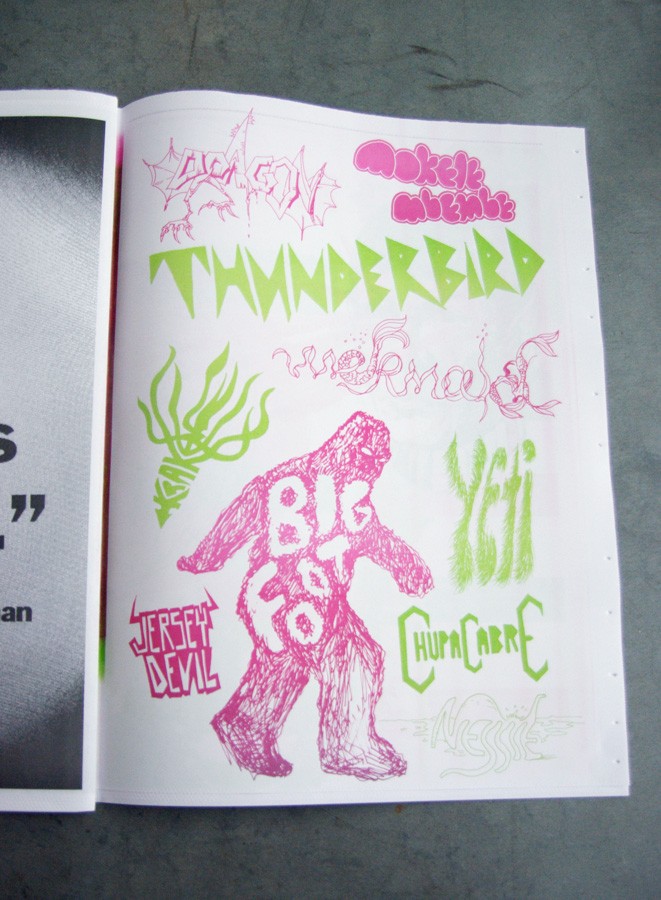 DRAGON
MOKELE
MBEMBE
THUNDERBIRD
mermaid
KRAKEN
BIG
FOOT
YETi
JERSEY
DEVIL
CHUPACABRE
NESSIE
S
”
an